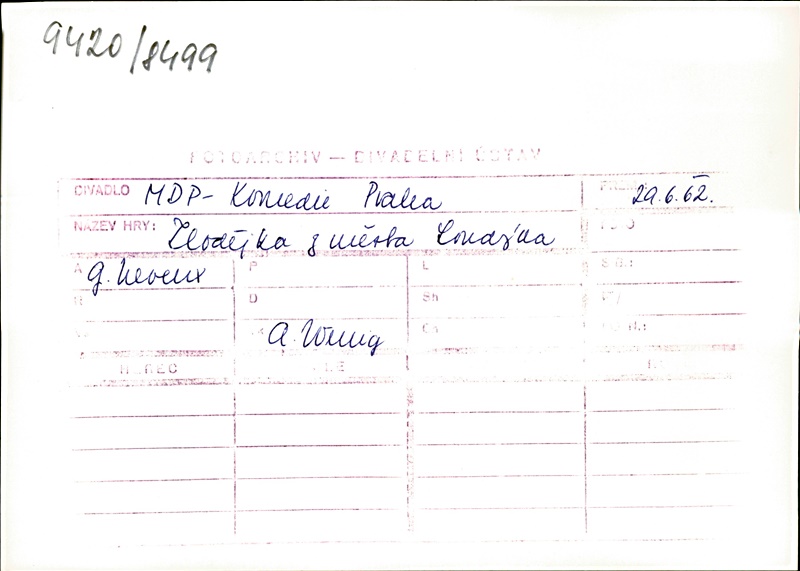 9420/8499
FOTOARCHIV — DIVADELNÍ ÚSTAV
DIVADLO MDP- Komedie Praha 29.6.62.
NÁZEV HRY: Zlodějka z města Londýna
A G. Neveux P L
D Sh
A. Wenig
HEREC